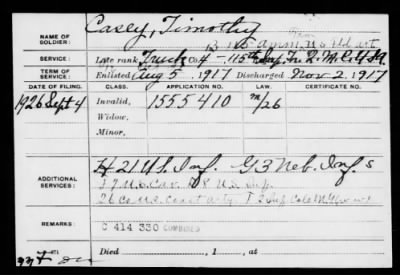 NAME OF SOLDIER:
Casey, Timothy
SERVICE:
Late rank Truck Co. 4 - 115th
TERM OF SERVICE:
Enlisted Aug 5, 1917 Discharged Nov 2, 1917
DATE OF FILING. CLASS. APPLICATION NO. LAW. CERTIFICATE NO.
1926 Sept 4 Invalid, 1555410 m/26
Widow,
Minor,
ADDITIONAL SERVICES:
H 21 U.S. Inf. G 3 Neb. Inf.
U.S. Cav. 8 U.S. Inf.
26 Co. U.S. Coast Arty.
REMARKS:
C 414 330 COMBINED
Died , 1 , at